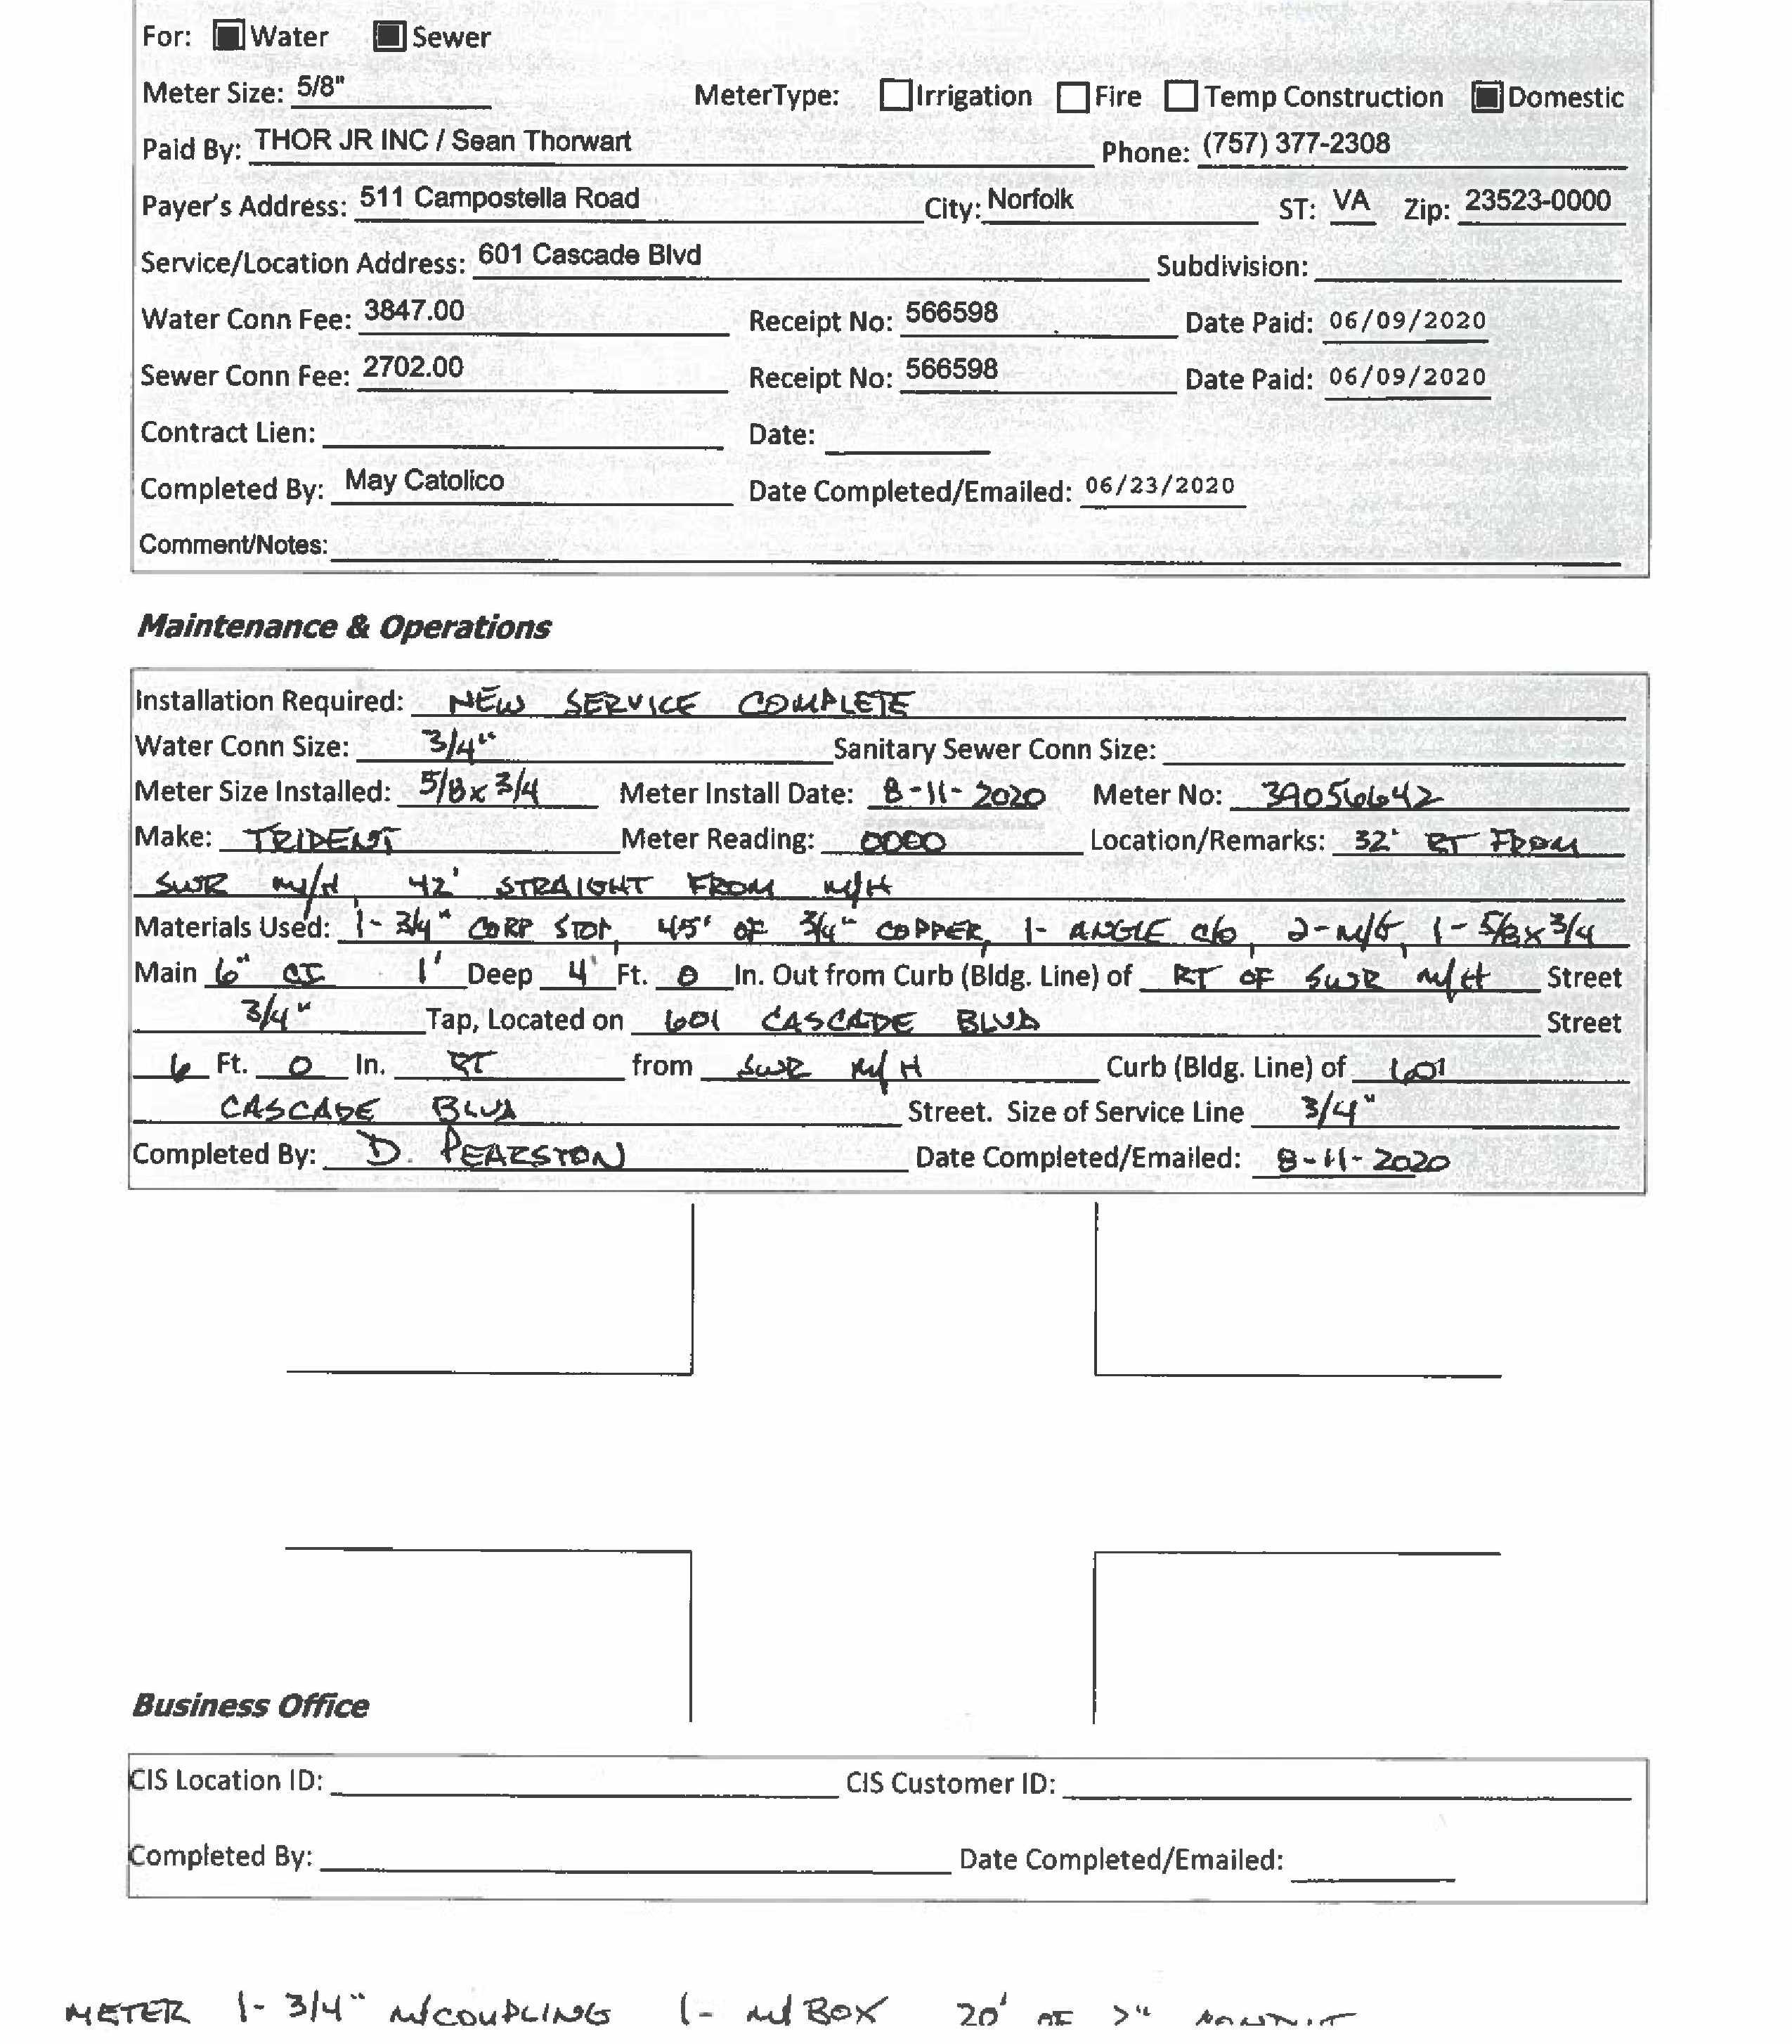 For: Water Sewer
Meter Size: 5/8" MeterType: Irrigation Fire Temp Construction Domestic
Paid By: THOR JR INC / Sean Thorwart Phone: (757) 377-2308
Payer's Address: 511 Campostella Road City: Norfolk ST: VA Zip: 23523-0000
Service/Location Address: 601 Cascade Blvd Subdivision:
Water Conn Fee: 3847.00 Receipt No: 566598 Date Paid: 06/09/2020
Sewer Conn Fee: 2702.00 Receipt No: 566598 Date Paid: 06/09/2020
Contract Lien: Date:
Completed By: May Catolico Date Completed/Emailed: 06/23/2020
Comment/Notes:
Maintenance & Operations
Installation Required: NEW SERVICE COMPLETE
Water Conn Size: 3/4" Sanitary Sewer Conn Size:
Meter Size Installed: 5/8 x 3/4 Meter Install Date: 8-11-2020 Meter No: 39056642
Make: TRIDENT Meter Reading: 0000 Location/Remarks: 32' RT FROM
SWR M/H 42' STRAIGHT FROM M/H
Materials Used: 1- 3/4" CORP STOP, 45' OF 3/4" COPPER, 1- ANGLE c/o, 2-M/G, 1- 5/8 x 3/4
Main 6" CI 1' Deep 4' Ft. 0 In. Out from Curb (Bldg. Line) of RT OF SWR M/H Street
3/4" Tap, Located on 601 CASCADE BLVD Street
6 Ft. 0 In. RT from SWR M/H Curb (Bldg. Line) of 601
CASCADE BLVD Street. Size of Service Line 3/4"
Completed By: D. PEARSTON Date Completed/Emailed: 8-11-2020
Business Office
CIS Location ID: CIS Customer ID:
Completed By: Date Completed/Emailed:
METER 1- 3/4" M/COUPLING 1- M/BOX 20' OF